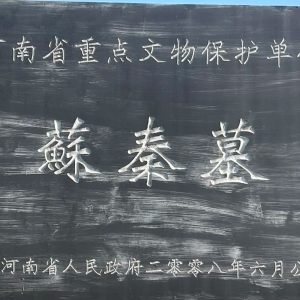 南省重点文物保护单
蘇秦墓
河南省人民政府二零零八年六月公